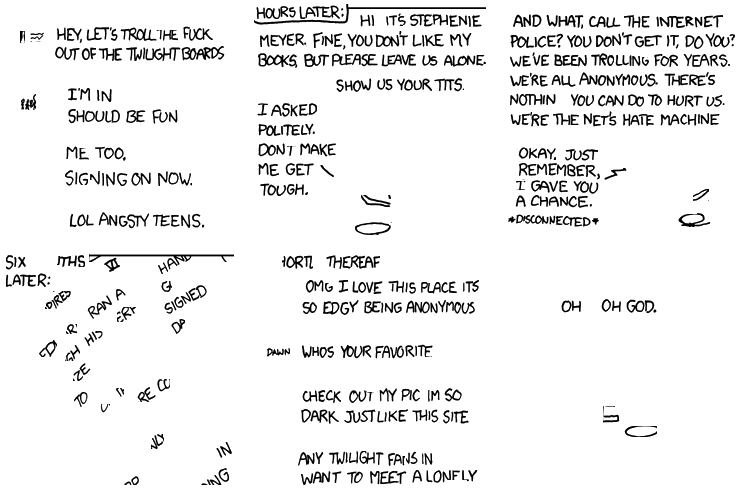 HEY, LET'S TROLL THE FUCK
OUT OF THE TWILIGHT BOARDS
I'M IN
SHOULD BE FUN
ME TOO.
SIGNING ON NOW.
LOL ANGSTY TEENS.
HOURS LATER:
HI ITS STEPHENIE
MEYER. FINE, YOU DON'T LIKE MY
BOOKS, BUT PLEASE LEAVE US ALONE.
SHOW US YOUR TITS.
I ASKED
POLITELY.
DON'T MAKE
ME GET
TOUGH.
AND WHAT, CALL THE INTERNET
POLICE? YOU DON'T GET IT, DO YOU?
WE'VE BEEN TROLLING FOR YEARS.
WE'RE ALL ANONYMOUS. THERE'S
NOTHIN YOU CAN DO TO HURT US.
WE'RE THE NET'S HATE MACHINE
OKAY. JUST
REMEMBER,
I GAVE YOU
A CHANCE.
*DISCONNECTED*
SIX
LATER:
RAN A
SIGNED
HIS
TO
IN
THEREAF
OMG I LOVE THIS PLACE ITS
SO EDGY BEING ANONYMOUS
DAWN WHOS YOUR FAVORITE
CHECK OUT MY PIC IM SO
DARK JUST LIKE THIS SITE
ANY TWILIGHT FANS IN
WANT TO MEET A LONELY
OH OH GOD.